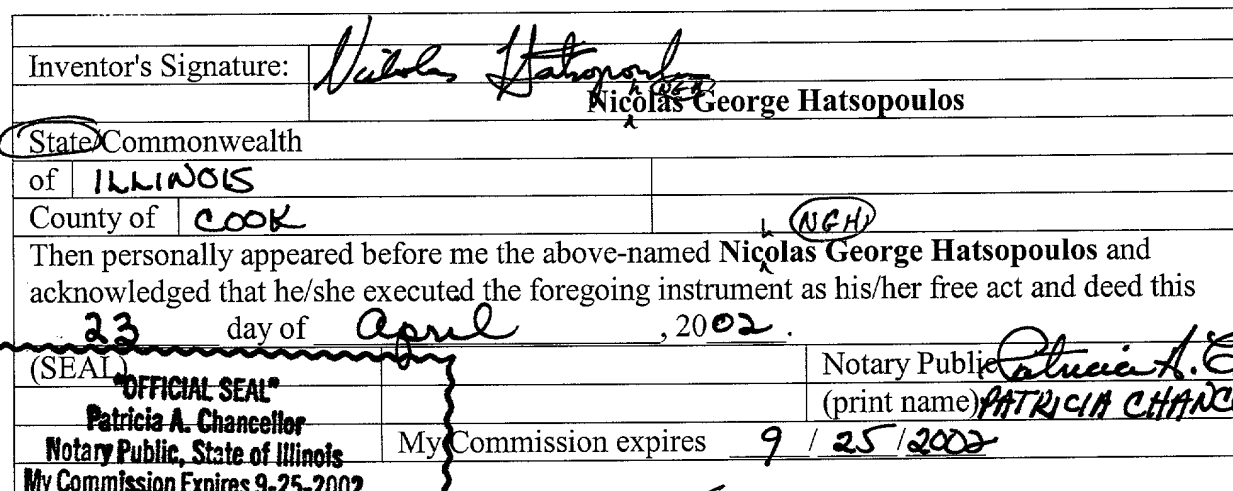 Inventor's Signature: Nicholas Hatsopoulos
h NGH
Nicolas George Hatsopoulos
State/Commonwealth
of ILLINOIS
County of COOK
h NGH
Then personally appeared before me the above-named Nicolas George Hatsopoulos and
acknowledged that he/she executed the foregoing instrument as his/her free act and deed this
23 day of April, 2002.
(SEAL) Notary Public Patricia A. C
"OFFICIAL SEAL"
(print name) PATRICIA CHANC
Patricia A. Chancellor
My Commission expires 9/25/2002
Notary Public, State of Illinois
My Commission Expires 9-25-2002